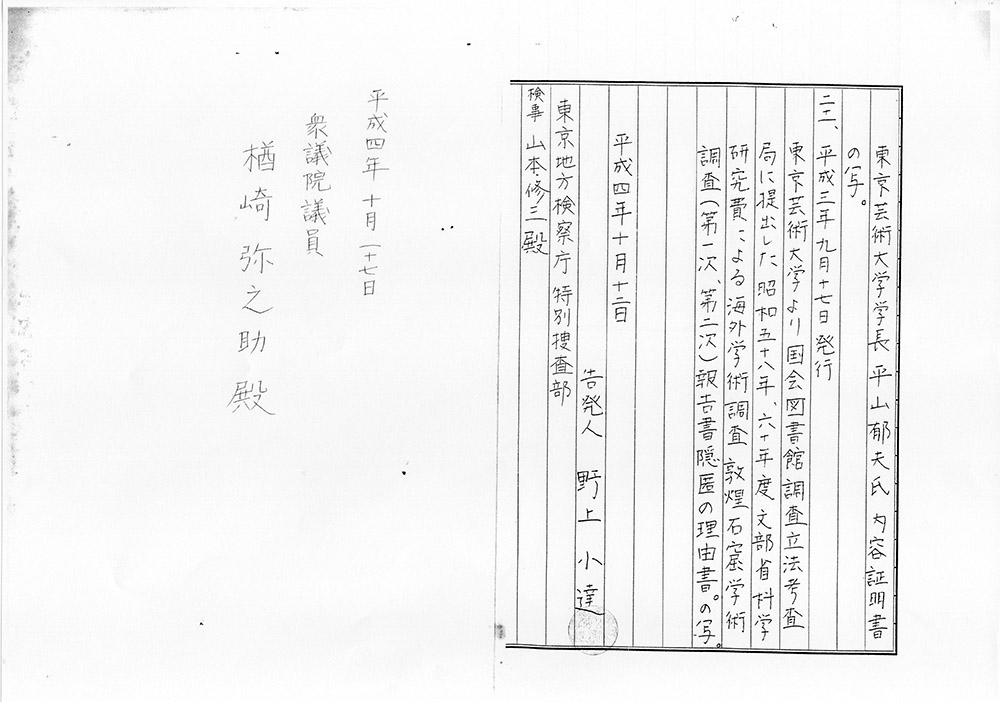 東京芸術大学学長 平山郁夫氏 内容証明書
の写。
二十一、平成三年九月十七日 発行
東京芸術大学より国会図書館調査立法考査
局に提出した昭和五十八年、六十年度文部省科学
研究費による海外学術調査 敦煌石窟学術
調査(第一次、第二次)報告書隠匿の理由書。の写。
平成四年十月十二日
告発人 野上小達
東京地方検察庁 特別捜査部
検事 山本修三殿
平成四年十月二十七日
衆議院議員
楢崎弥之助殿